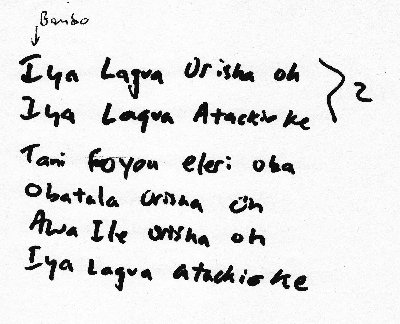 Bambo
Iya Lagua Orisha oh
Iya Lagua Atackio ke
2
Tani Foyou eleri oba
Obatala Orisha oh
Awa Ile orisha oh
Iya Lagua atackio ke